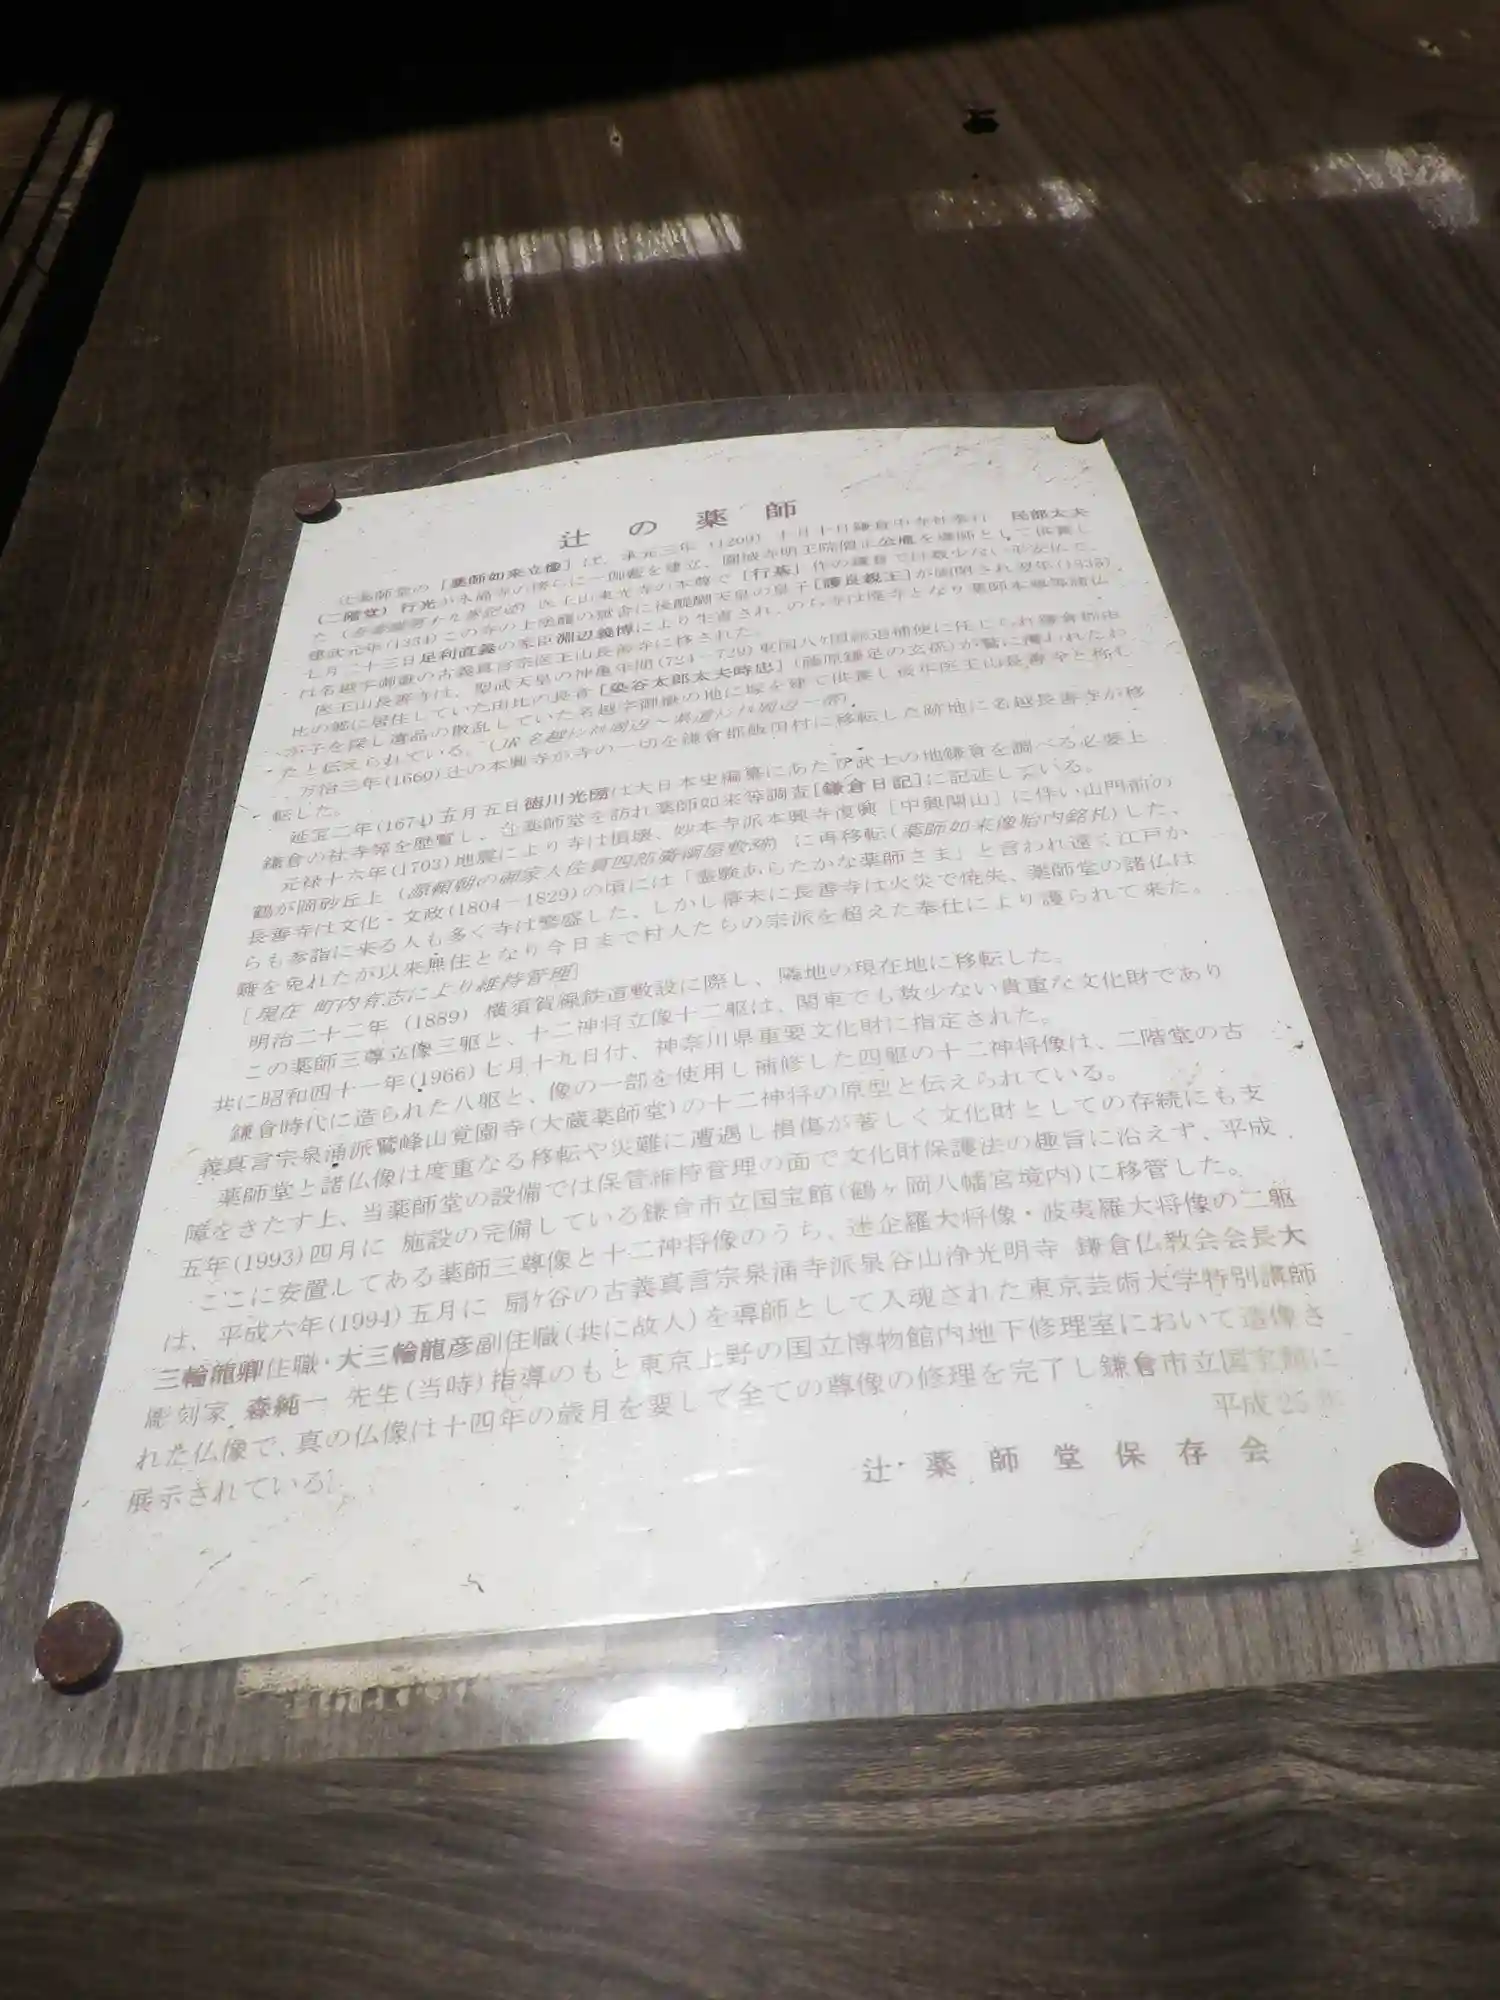 辻の薬師
辻薬師堂の［薬師如来立像］は、承元三年（1209）十月十日鎌倉中寺社奉行　民部大夫
（二階堂）行光が永福寺の傍らに一伽藍を建立、園城寺明王院僧正公胤を導師として供養し
た 医王山東光寺の本尊で［行基］作の鎌倉では数少ない平安仏で、
建武元年(1334)この寺の土塗籠の獄舎に後醍醐天皇の皇子［護良親王］が幽閉され翌年(1335)、
七月二十三日足利直義の家臣淵辺義博により生害され、のち寺は廃寺となり薬師本尊等諸仏
は名越字御嶽の古義真言宗医王山長善寺に移された。
医王山長善寺は、聖武天皇の神亀年間(724－729)東国八ヶ国総追補使に任じられ鎌倉郡由
比の郷に居住していた由比の長者［染谷太郎太夫時忠］(藤原鎌足の玄孫)が鷲に攫われたわ
が子を探し遺品の散乱していた名越字御嶽の地に塚を建て供養し後年医王山長善寺と称し
たと伝えられている。
万治三年(1660)辻の本興寺が寺の一切を鎌倉郡飯田村に移転した跡地に名越長善寺が移
転した。
延宝二年(1674)五月五日徳川光圀は大日本史編纂にあたり武士の地鎌倉を調べる必要上
鎌倉の社寺等を歴覧し、辻薬師堂を訪れ薬師如来等調査［鎌倉日記］に記述している。
元禄十六年(1703)地震により寺は損壊、妙本寺派本興寺復興［中興開山］に伴い山門前の
鶴が岡砂丘上（源頼朝の御家人佐貫四郎廣綱屋敷跡）に再移転(薬師如来像胎内銘札)した、
長善寺は文化・文政(1804－1829)の頃には「霊験あらたかな薬師さま」と言われ遠く江戸か
らも参詣に来る人も多く寺は繁盛した、しかし幕末に長善寺は火災で焼失、薬師堂の諸仏は
難を免れたが以来無住となり今日まで村人たちの宗派を超えた奉仕により護られて来た。
［現在 町内有志により維持管理］
明治二十二年（1889）横須賀線鉄道敷設に際し、隣地の現在地に移転した。
この薬師三尊立像三躯と、十二神将立像十二躯は、関東でも数少ない貴重な文化財であり
共に昭和四十一年(1966)七月十九日付、神奈川県重要文化財に指定された。
鎌倉時代に造られた八躯と、像の一部を使用し補修した四躯の十二神将像は、二階堂の古
義真言宗泉涌派鷲峰山覚園寺(大蔵薬師堂)の十二神将の原型と伝えられている。
薬師堂と諸仏像は度重なる移転や災難に遭遇し損傷が著しく文化財としての存続にも支
障をきたす上、当薬師堂の設備では保管維持管理の面で文化財保護法の趣旨に沿えず、平成
五年(1993)四月に 施設の完備している鎌倉市立国宝館(鶴ヶ岡八幡宮境内)に移管した。
ここに安置してある薬師三尊像と十二神将像のうち、迷企羅大将像・波夷羅大将像の二躯
は、平成六年(1994)五月に 扇ヶ谷の古義真言宗泉涌寺派泉谷山浄光明寺 鎌倉仏教会会長大
三輪龍卿住職・大三輪龍彦副住職(共に故人)を導師として入魂された東京芸術大学特別講師
彫刻家 森純一 先生(当時)指導のもと東京上野の国立博物館内地下修理室において造像さ
れた仏像で、真の仏像は十四年の歳月を要して全ての尊像の修理を完了し鎌倉市立国宝館に
展示されている。
平成25年
辻薬師堂保存会